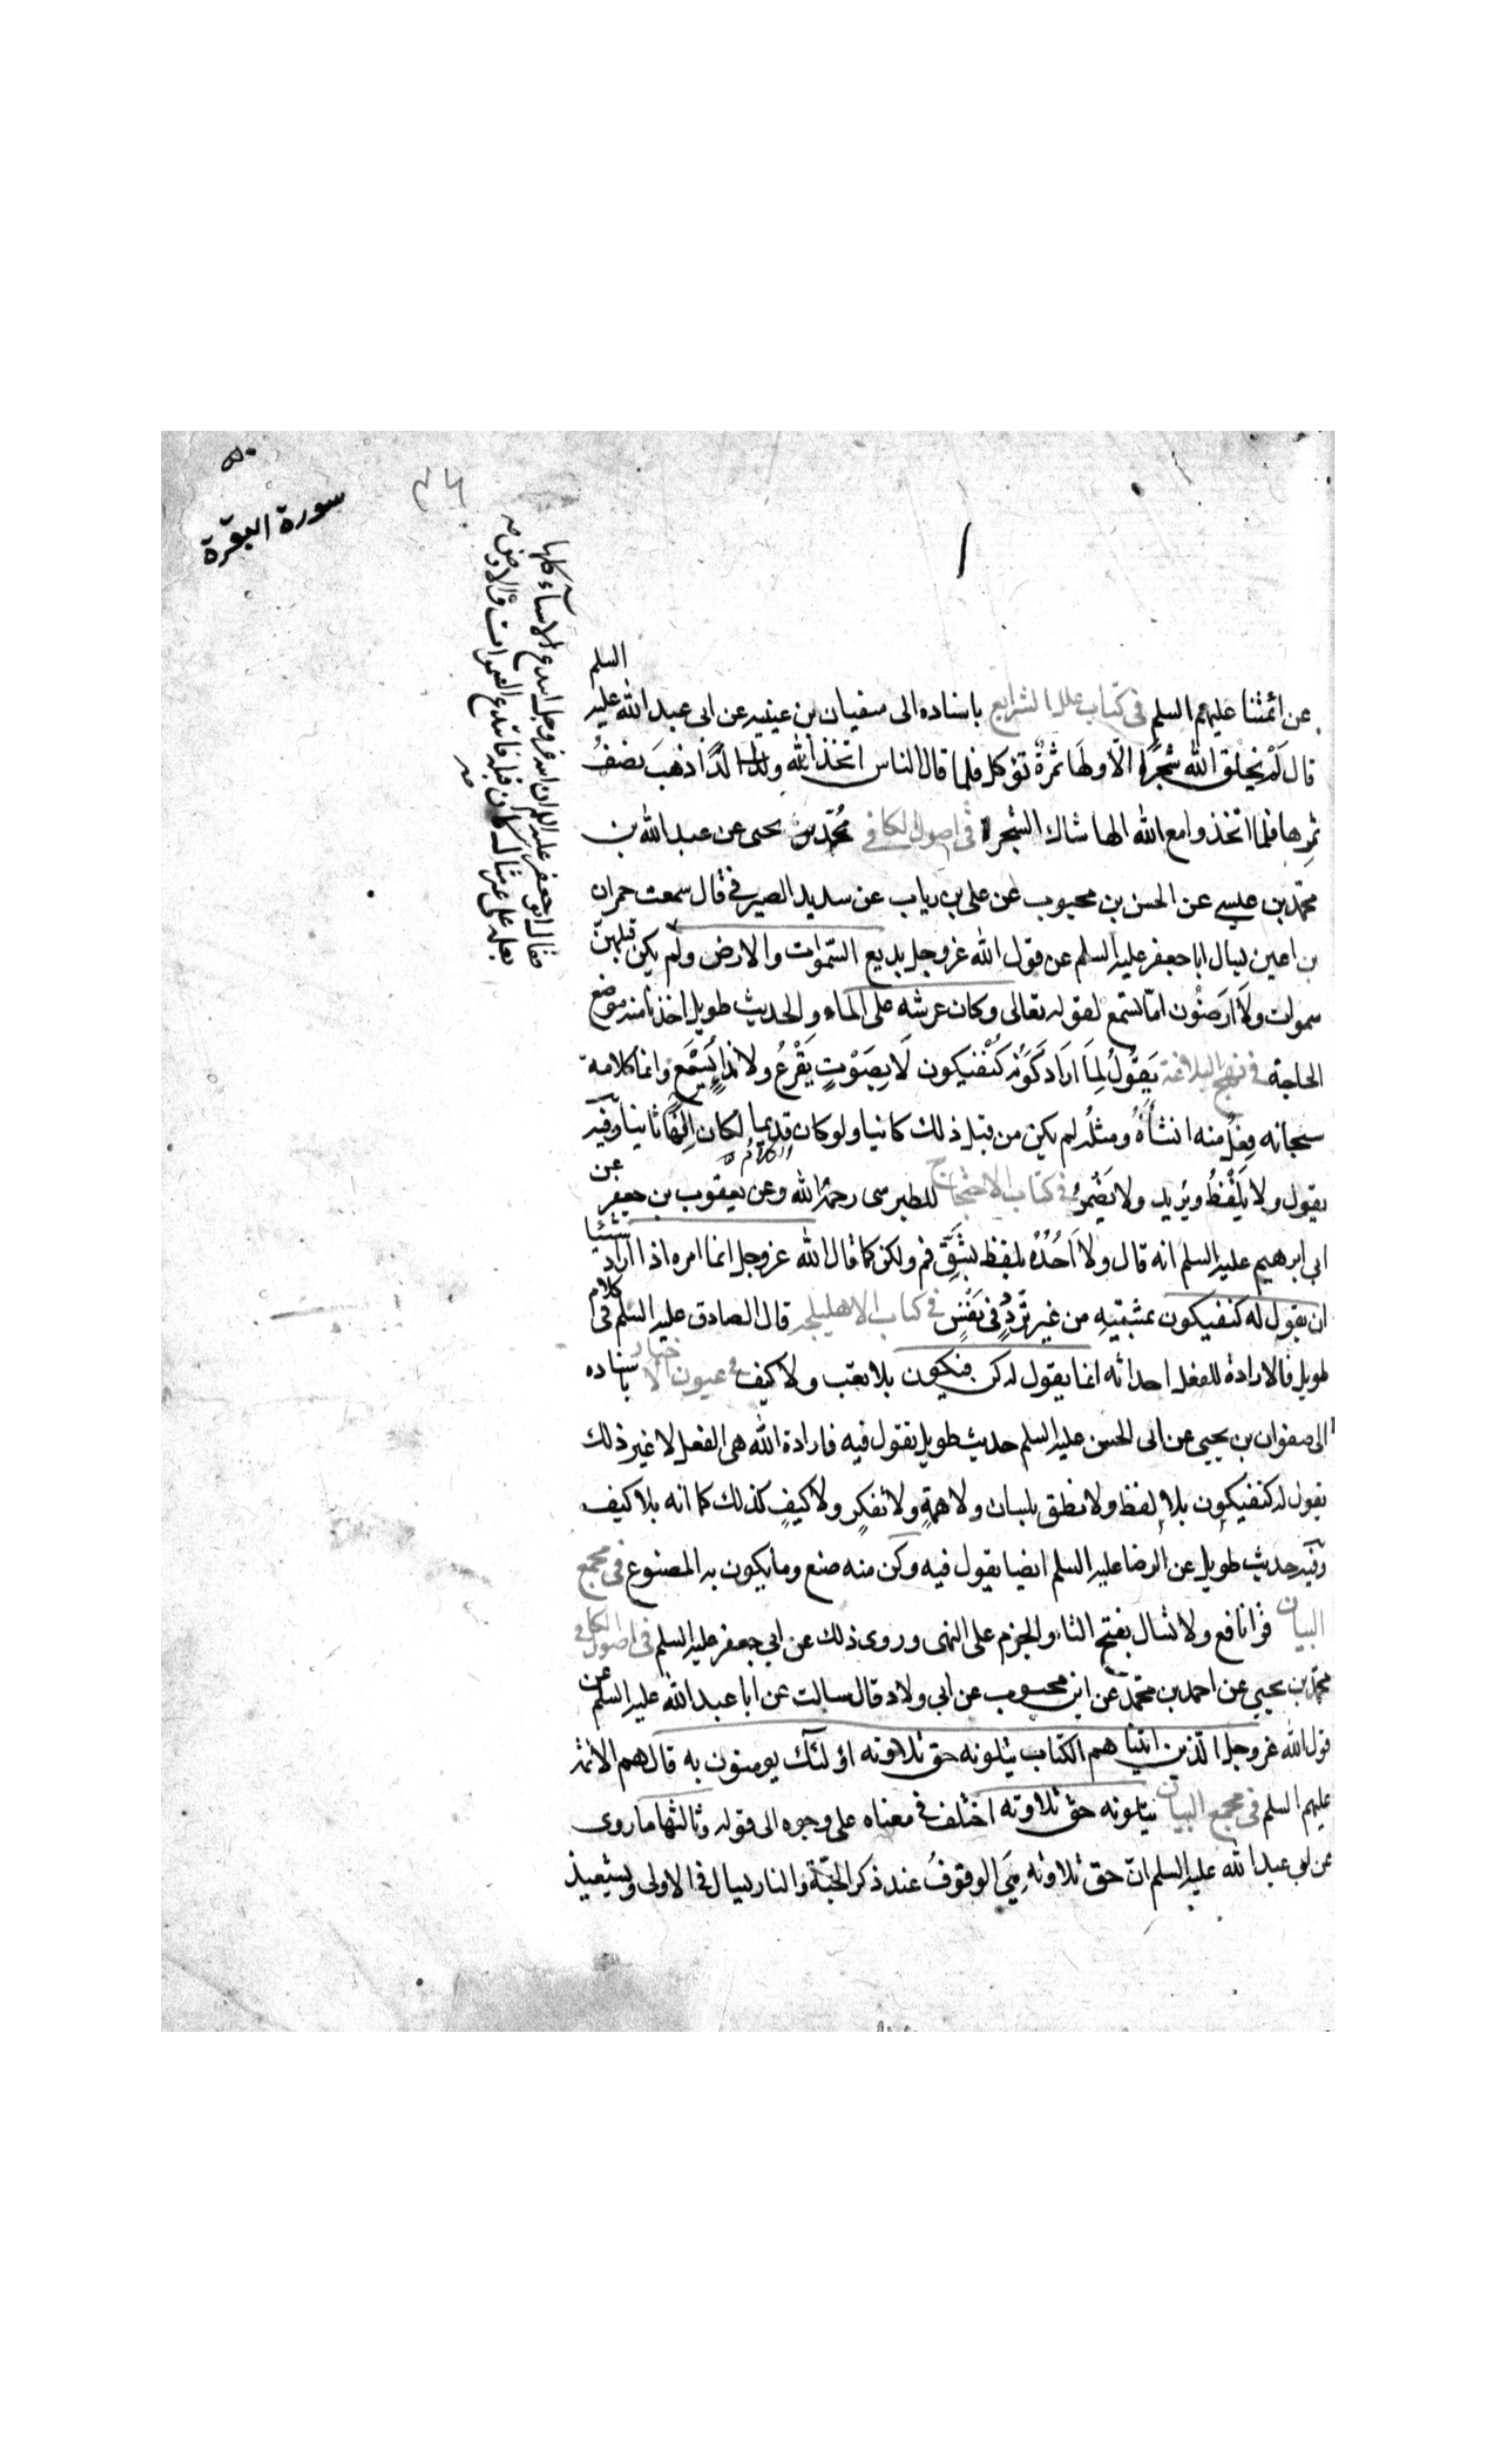 سورة البقرة
عن ائمتنا عليهم السلم في كتاب علل الشرايع باسناده الى سفيان بن عيينه عن ابى عبد الله عليه السلم
قال لم يخلق الله شجرة الا ولها ثمرة تؤكل فلما قال الناس اتخذ الله ولدا ذهب نصف
ثمرها فلما اتخذوا مع الله الها شاك الشجرة في اصول الكافي محمد بن يحيى عن عبد الله بن
محمد بن عيسى عن الحسن بن محبوب عن على بن رياب عن سدير الصيرفى قال سمعت حمران
بن اعين يسال ابا جعفر عليه السلم عن قول الله عز وجل بديع السموات والارض ولم يكن قبلهن
سموات ولا ارضون اما تسمع لقوله تعالى وكان عرشه على الماء والحديث طويل اخذنا منه موضع
الحاجة في نهج البلاغة يقول لما اراد كونه كن فيكون لا بصوت يقرع ولا نداء يسمع وانما كلامه
سبحانه فعل منه انشأه ومثله لم يكن من قبل ذلك كائنا ولو كان قديما لكان الها ثانيا وفيه
يقول ولا يلفظ ويريد ولا يضمر في كتاب الاحتجاج للطبرسى رحمه الله وعن يعقوب بن جعفر عن
ابى ابرهيم عليه السلم انه قال ولا احده بلفظ بشق فم ولكن كما قال الله عز وجل انما امره اذا اراد شيئا
ان يقول له كن فيكون بمشيته من غير تردد في نفس في كتاب الاهليلجه قال الصادق عليه السلم في كلام
طويل فالارادة للفعل احداثه انما يقول له كن فيكون بلا تعب ولا كيف في عيون الاخبار باسناده
الى صفوان بن يحيى عن ابى الحسن عليه السلم حديث طويل يقول فيه فارادة الله هى الفعل لا غير ذلك
يقول له كن فيكون بلا لفظ ولا نطق بلسان ولا همة ولا تفكر ولا كيف كذلك كما انه بلا كيف
وفيه حديث طويل عن الرضا عليه السلم ايضا يقول فيه وكن منه صنع وما يكون به المصنوع في مجمع
البيان قرا نافع ولا تسال بفتح التاء والجزم على النهى وروى ذلك عن ابى جعفر عليه السلم في اصول الكافي
محمد بن يحيى عن احمد بن محمد عن ابن محبوب عن ابى ولاد قال سالت عن ابا عبد الله عليه السلم عن
قول الله عز وجل الذين اتيناهم الكتاب يتلونه حق تلاوته اولئك يومنون به قال هم الائمة
عليهم السلم في مجمع البيان يتلونه حق تلاوته اختلف في معناه على وجوه الى قوله وثالثها ما روى
عن ابى عبد الله عليه السلم ان حق تلاوته هى الوقوف عند ذكر الجنة والنار يسال في الاولى ويستعيذ
فقال ابو جعفر عليه السلم ان الله عز وجل ابتدع الاشياء كلها
بعلمه على غير مثال كان قبله فابتدع السموات والارض